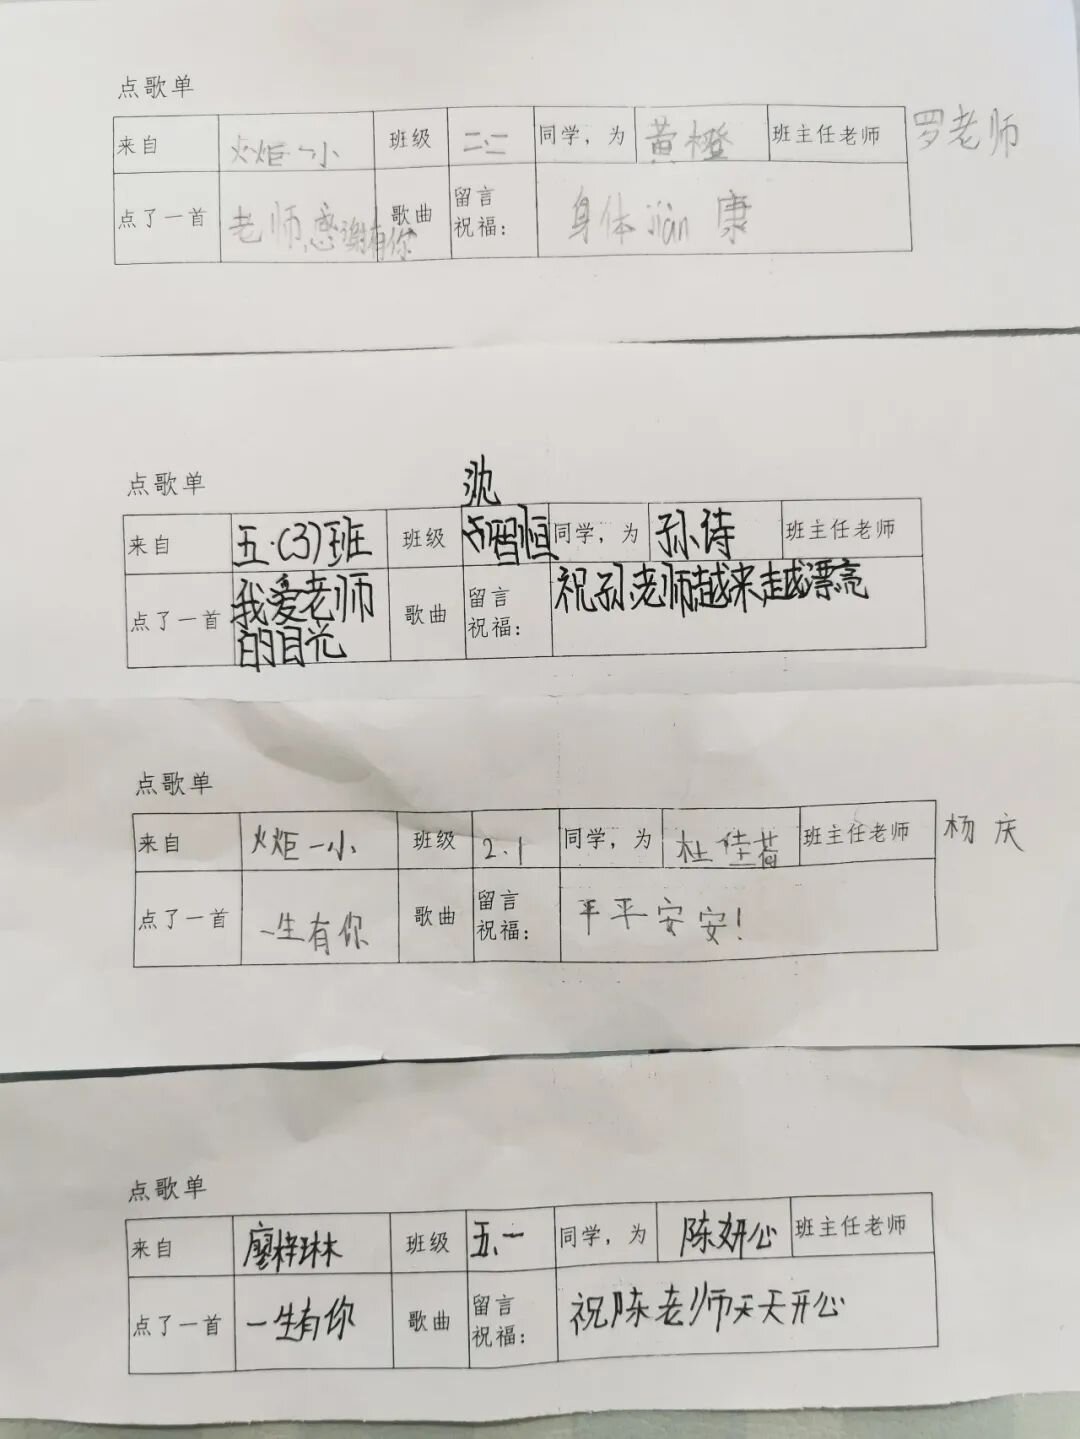 点歌单
来自 火炬一小 班级 二.二 同学，为 黄橙 班主任老师 罗老师
点了一首 老师感谢有你 歌曲 留言祝福： 身体jiàn康
点歌单
沈
来自 五.(3)班 班级 智恒 同学，为 孙诗 班主任老师
点了一首 我爱老师的目光 歌曲 留言祝福： 祝孙老师越来越漂亮
点歌单
来自 火炬一小 班级 2.1 同学，为 杜佳 班主任老师 杨庆
点了一首 一生有你 歌曲 留言祝福： 平平安安！
点歌单
来自 廖梓琳 班级 五、一 同学，为 陈妍心 班主任老师
点了一首 一生有你 歌曲 留言祝福： 祝陈老师天天开心